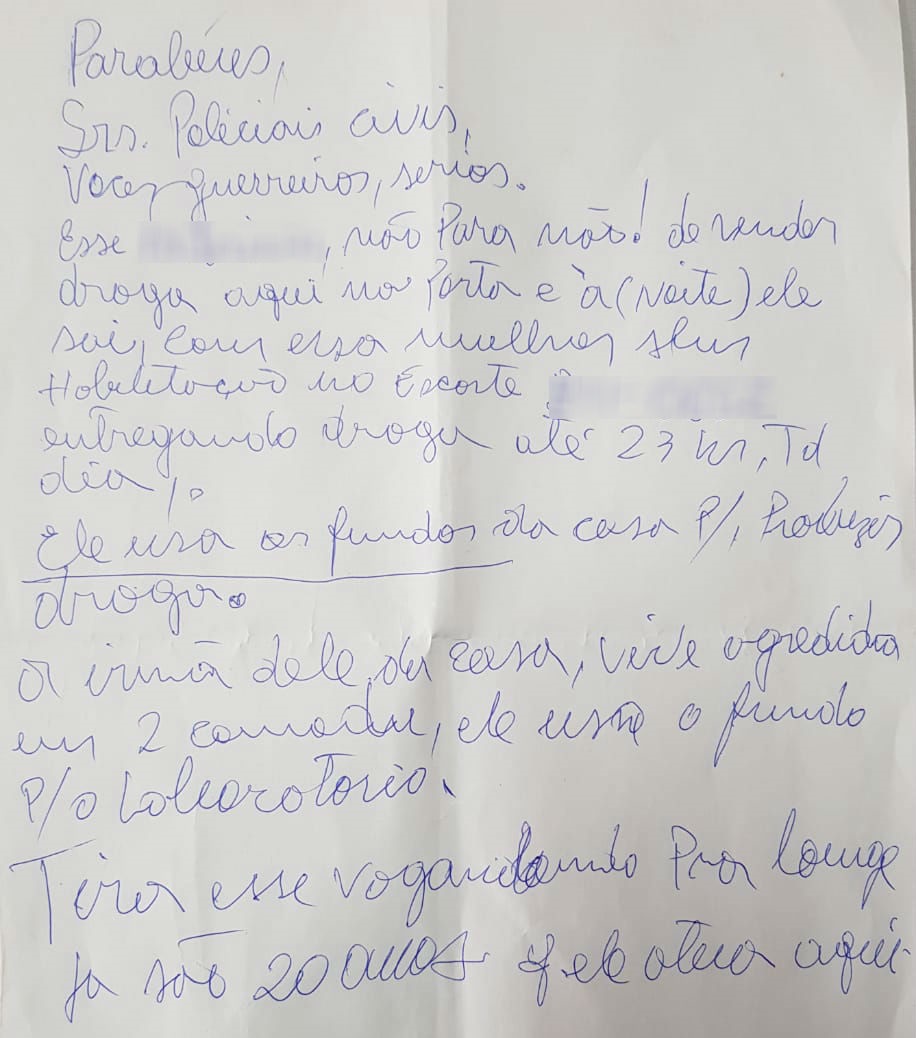 Parabéns,
Srs. Policiais civis,
Voces guerreiros, serios.
Esse , não Para não! de vender
droga aqui na Porta e à (Noite) ele
sai, com essa mulher sem
Habilitação no Escorte
entregando droga até 23 hs, Td
dia,.
Ele usa os fundos da casa P/, Produzir
droga.
a irmã dele, da casa, vive agredida
em 2 comodos, ele usa o fundo
P/o Laboratorio.
Tira esse Pra longe
ja são 20 anos q ele atua aqui.